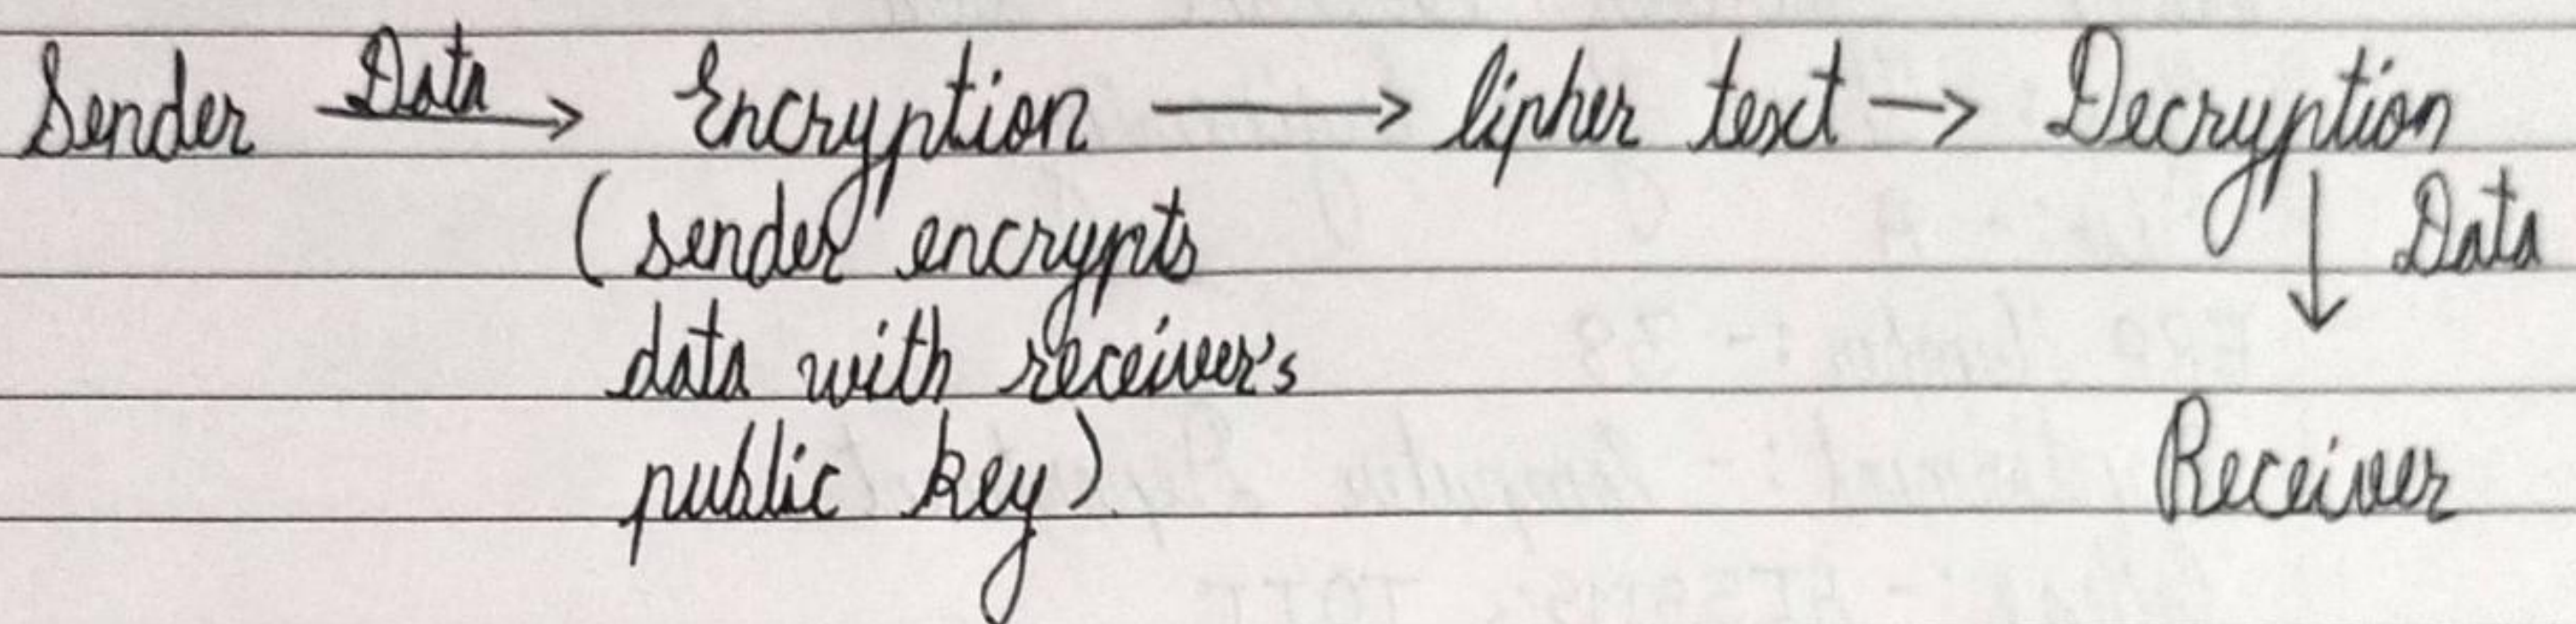 Sender Data → Encryption → Cipher text → Decryption
(sender encrypts ↓ Data
data with receiver's
public key) Receiver